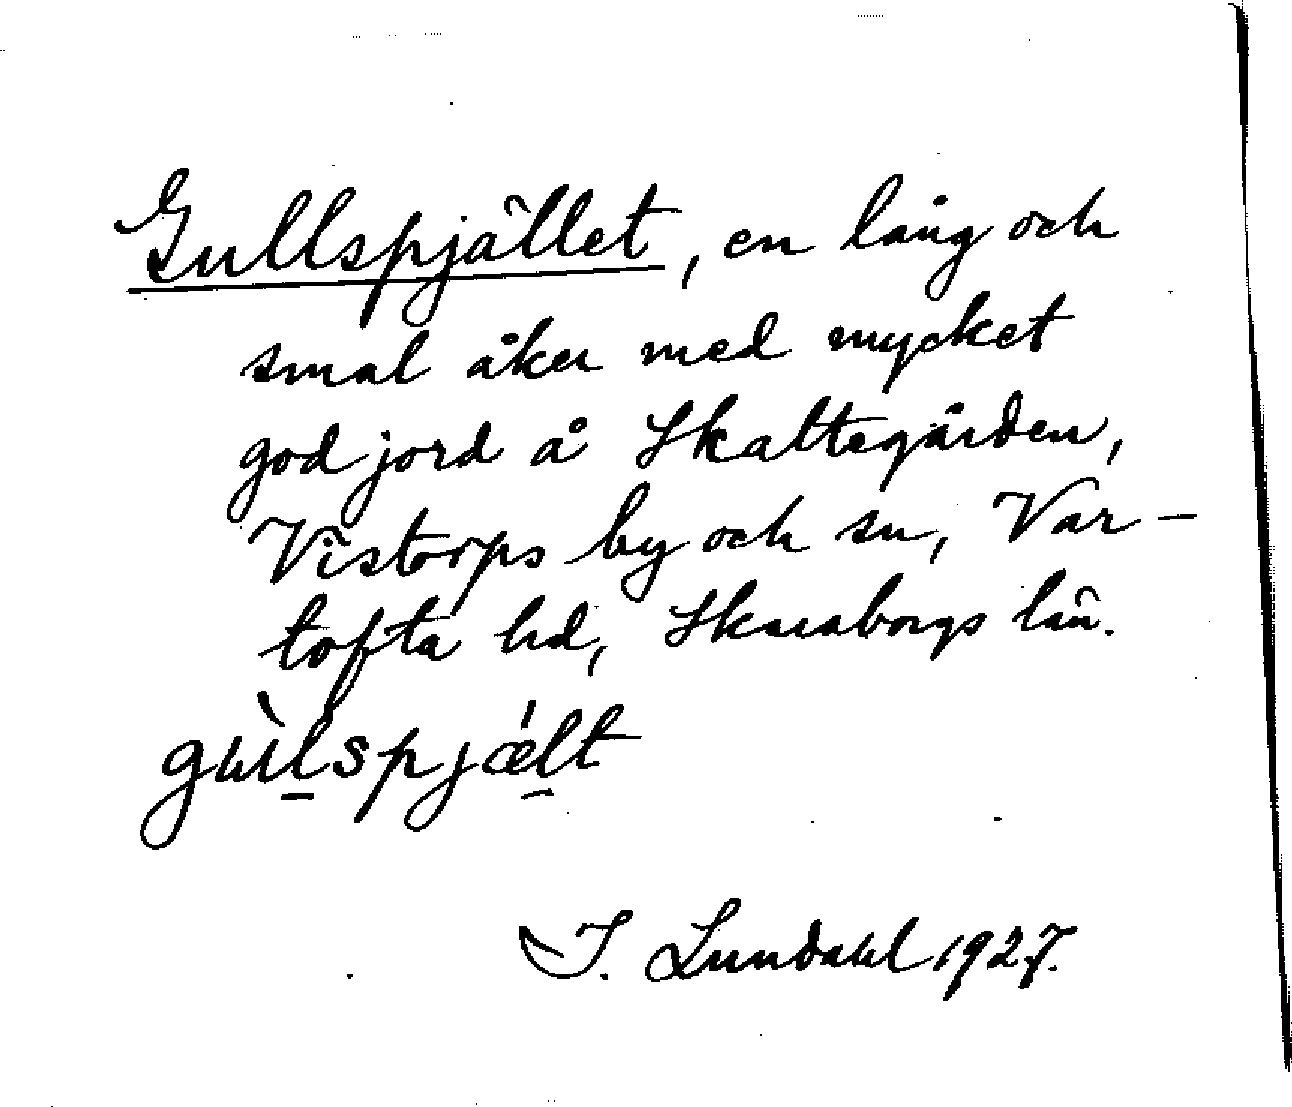 Gullspjället, en lång och
smal åker med mycket
god jord å Skattegården,
Vistorps by och sn, Var-
tofta hd, Skaraborgs län.
gùl̲spjǽl̲t
I. Lundahl 1927.